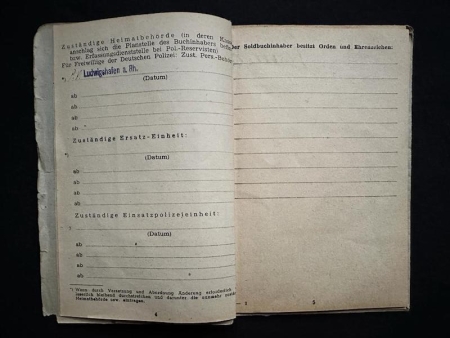 Zuständige Heimatbehörde (in deren
anschlag sich die Planstelle des Buchinhabers
bzw. Erfassungsdienststelle bei Pol.-Reservisten)
Für Freiwillige der Deutschen Polizei: Zust. Pers.-
Ludwigshafen a. Rh.
(Datum)
ab
ab
ab
Zuständige Ersatz-Einheit:
(Datum)
ab
ab
ab
Zuständige Einsatzpolizeieinheit:
(Datum)
ab
ab
ab
*) Wenn durch Versetzung und Abordnung Änderung
leserlich bleibend durchstreichen und darunter die nunmehr
Heimatbehörde usw. eintragen.
4
Der Soldbuchinhaber besitzt Orden und Ehrenzeichen:
5